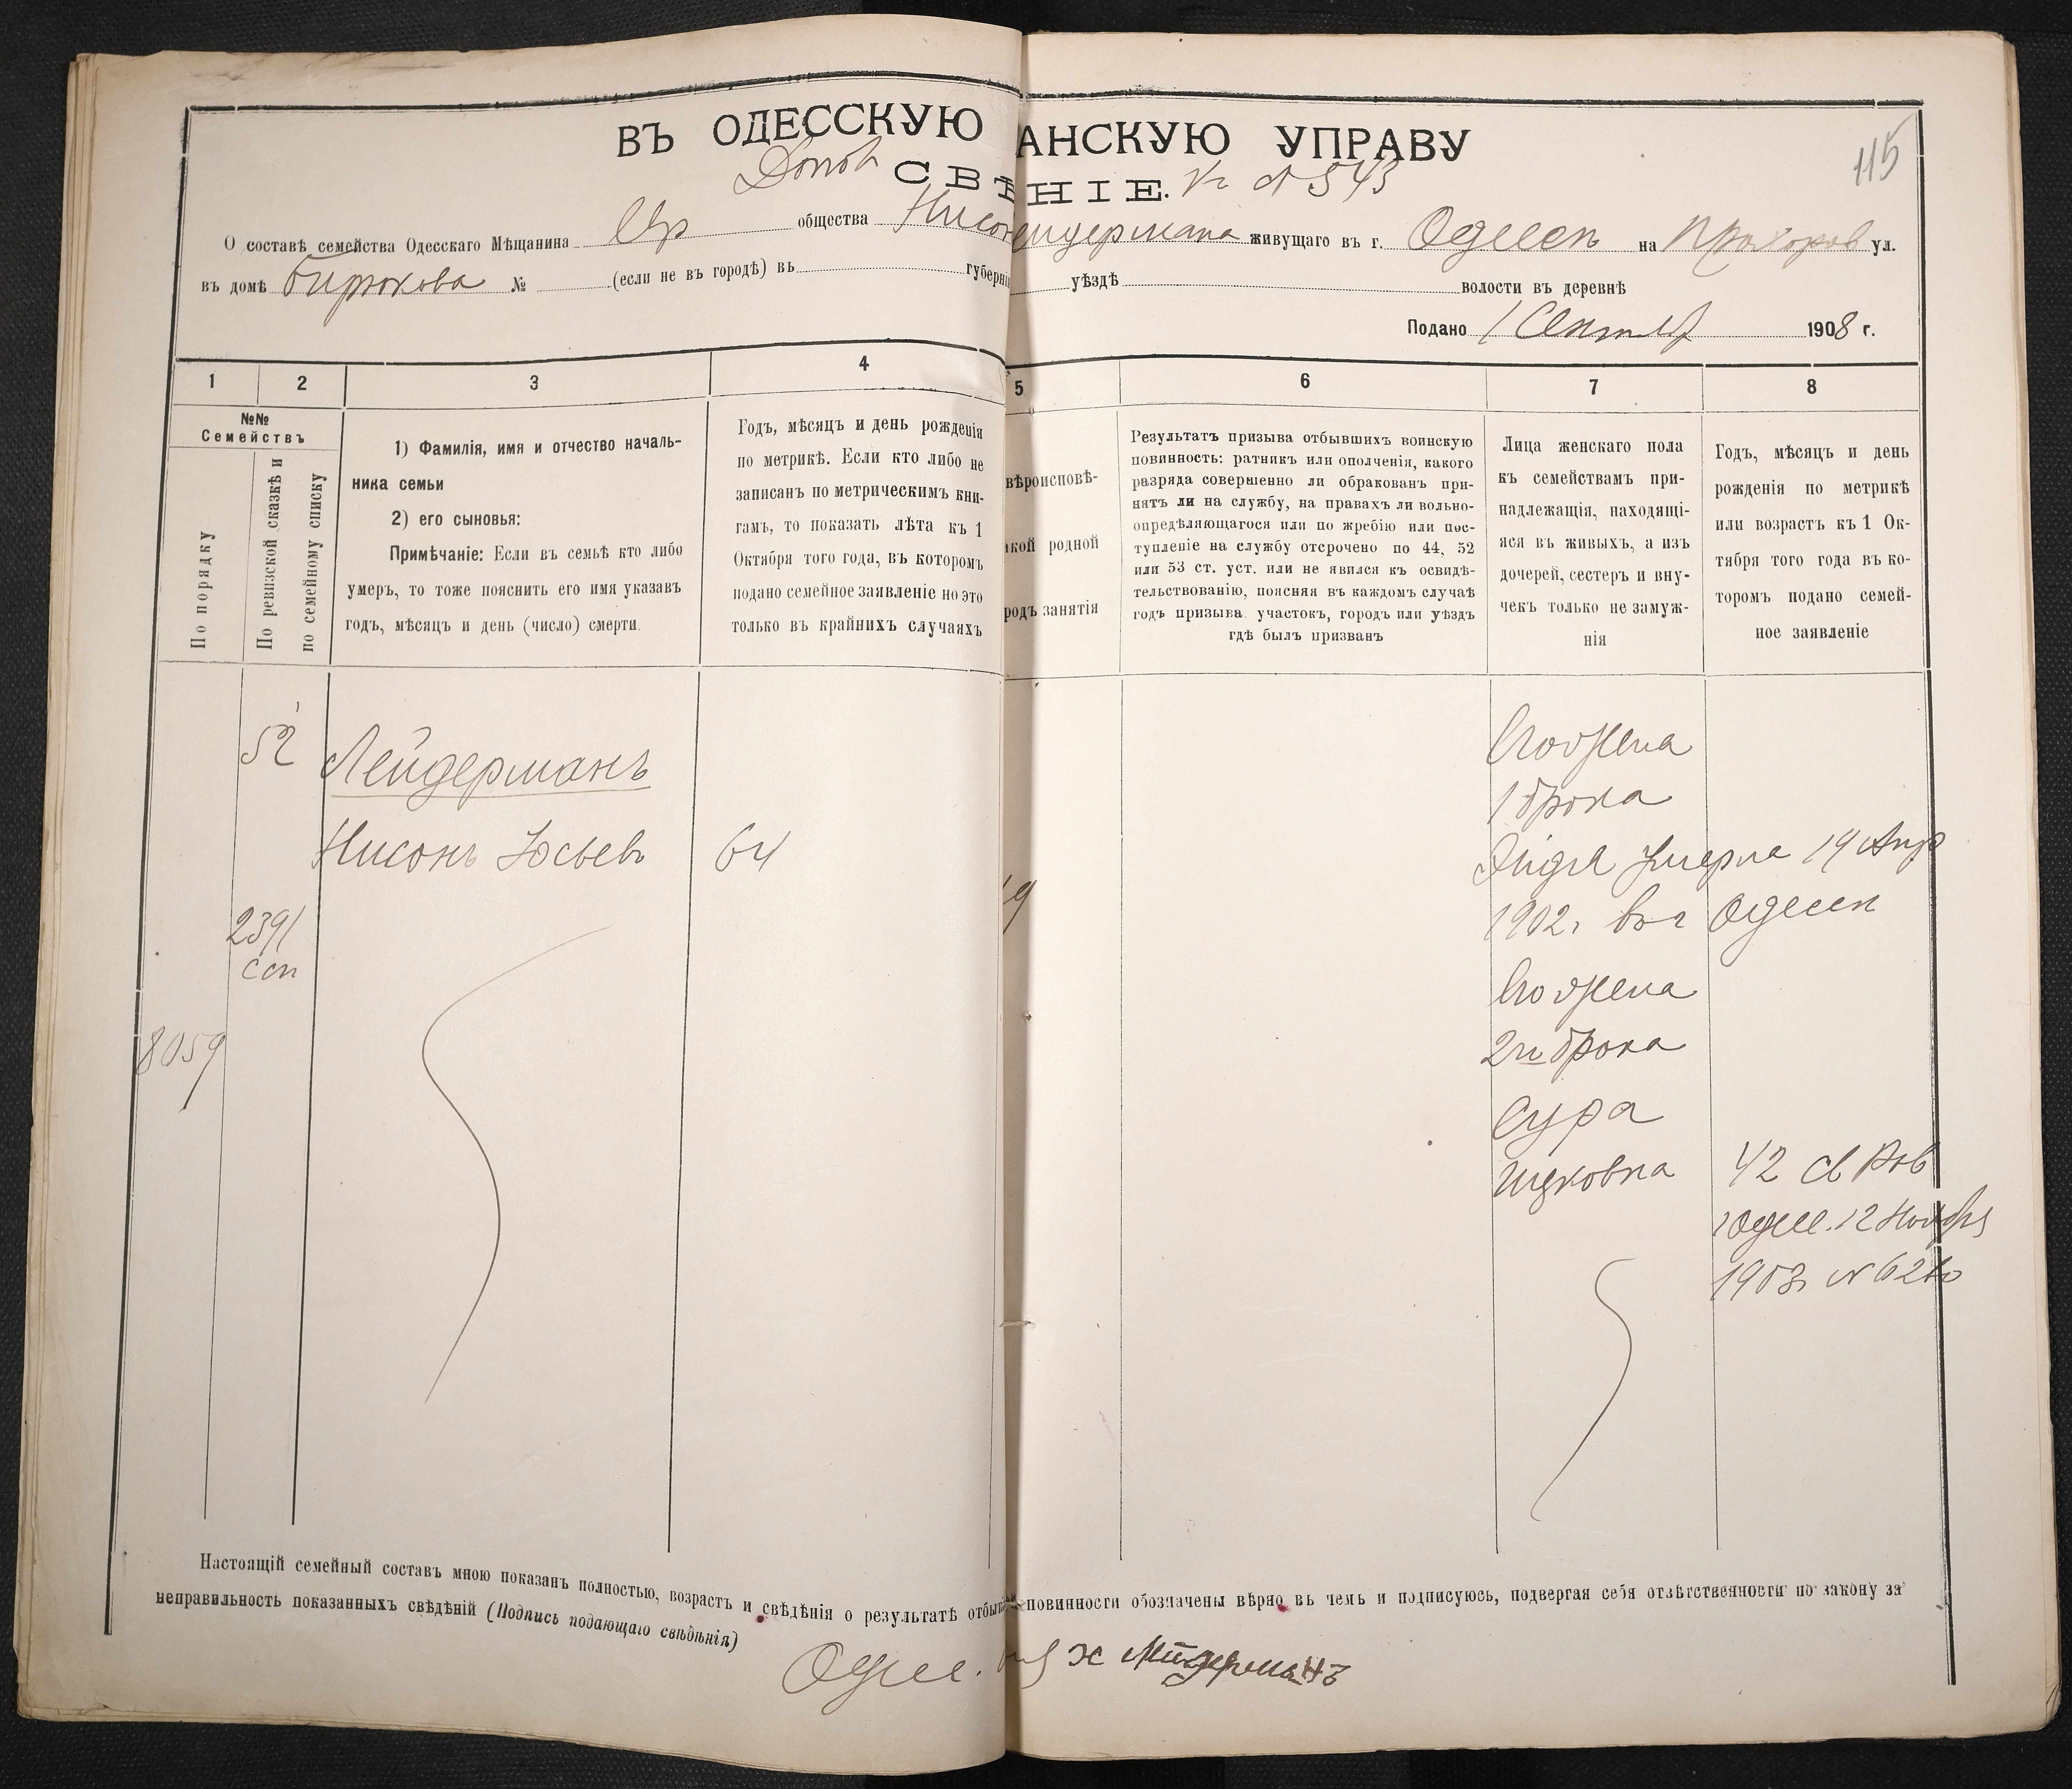 115
ВЪ ОДЕССКУЮ АНСКУЮ УПРАВУ
СВѢНІЕ. № 543
О составѣ семейства Одесскаго Мѣщанина Евр общества Нисон ейдермана живущаго въ г. Одессѣ на Прохоров ул.
въ домѣ Бирюкова № (если не въ городѣ) въ губерні уѣздѣ волости въ деревнѣ
Подано 1 Сентяб 1908 г.
1 2 3 4 5 6 7 8
№№
Семействъ
По порядку
По ревизской сказкѣ и
по семейному списку
1) Фамилія, имя и отчество началь-
ника семьи
2) его сыновья:
Примѣчаніе: Если въ семьѣ кто либо
умеръ, то тоже пояснить его имя указавъ
годъ, мѣсяцъ и день (число) смерти.
Годъ, мѣсяцъ и день рожденія
по метрикѣ. Если кто либо не
записанъ по метрическимъ кни-
гамъ, то показать лѣта къ 1
Октября того года, въ которомъ
подано семейное заявленіе но это
только въ крайнихъ случаяхъ
вѣроисповѣ-
акой родной
родъ занятія
Результатъ призыва отбывшихъ воинскую
повинность: ратникъ или ополченія, какого
разряда совершенно ли обракованъ при-
нятъ ли на службу, на правахъ ли вольно-
опредѣляющагося или по жребію или пос-
тупленіе на службу отсрочено по 44, 52
или 53 ст. уст. или не явился къ освидѣ-
тельствованію, поясняя въ каждомъ случаѣ
годъ призыва. участокъ, городъ или уѣздъ
гдѣ былъ призванъ
Лица женскаго пола
къ семействамъ при-
надлежащія, находящі-
яся въ живыхъ, а изъ
дочерей, сестеръ и вну-
чекъ только не замуж-
нія
Годъ, мѣсяцъ и день
рожденія по метрикѣ
или возрастъ къ 1 Ок-
тября того года въ ко-
торомъ подано семей-
ное заявленіе
52
Лейдерманъ
Нисонъ Іосьевъ 64
2391
ссп
8059
Его жена
1 брака
умерла 19 Апр
1902 г въ г Одессѣ
Его жена
2го брака
Сура
Ицковна 42 св Рав
Одес. 12 Ноября
1903 г
Настоящій семейный составъ мною показанъ полностью, возрастъ и свѣдѣнія о результатѣ отбыв повинности обозначены вѣрно въ чемъ и подписуюсь, подвергая себя отвѣтственности по закону за
неправильность показанныхъ свѣдѣній (Подпись подающаго свѣдѣнія)